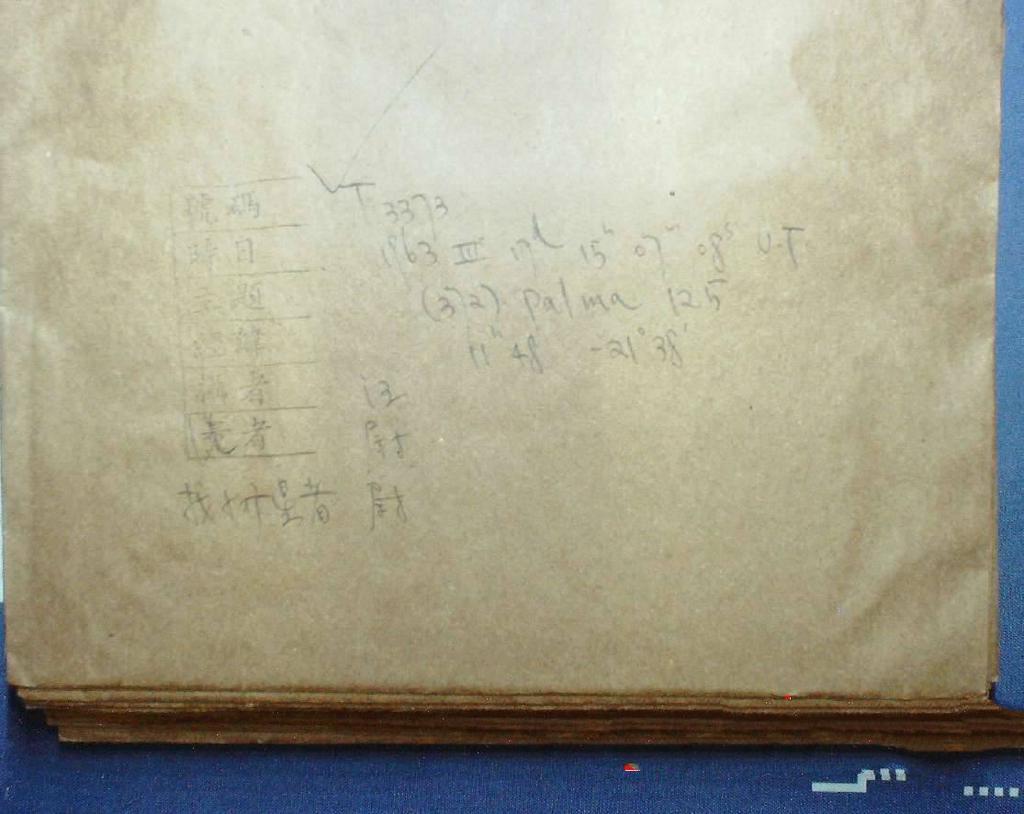 號碼 3373
時日 1963 III 17d 15h 07m 08s U.T
主題 (372) palma 125
經緯 11h 48 -21° 38'
攝者 汪
覓者 尉
找小行星者 尉